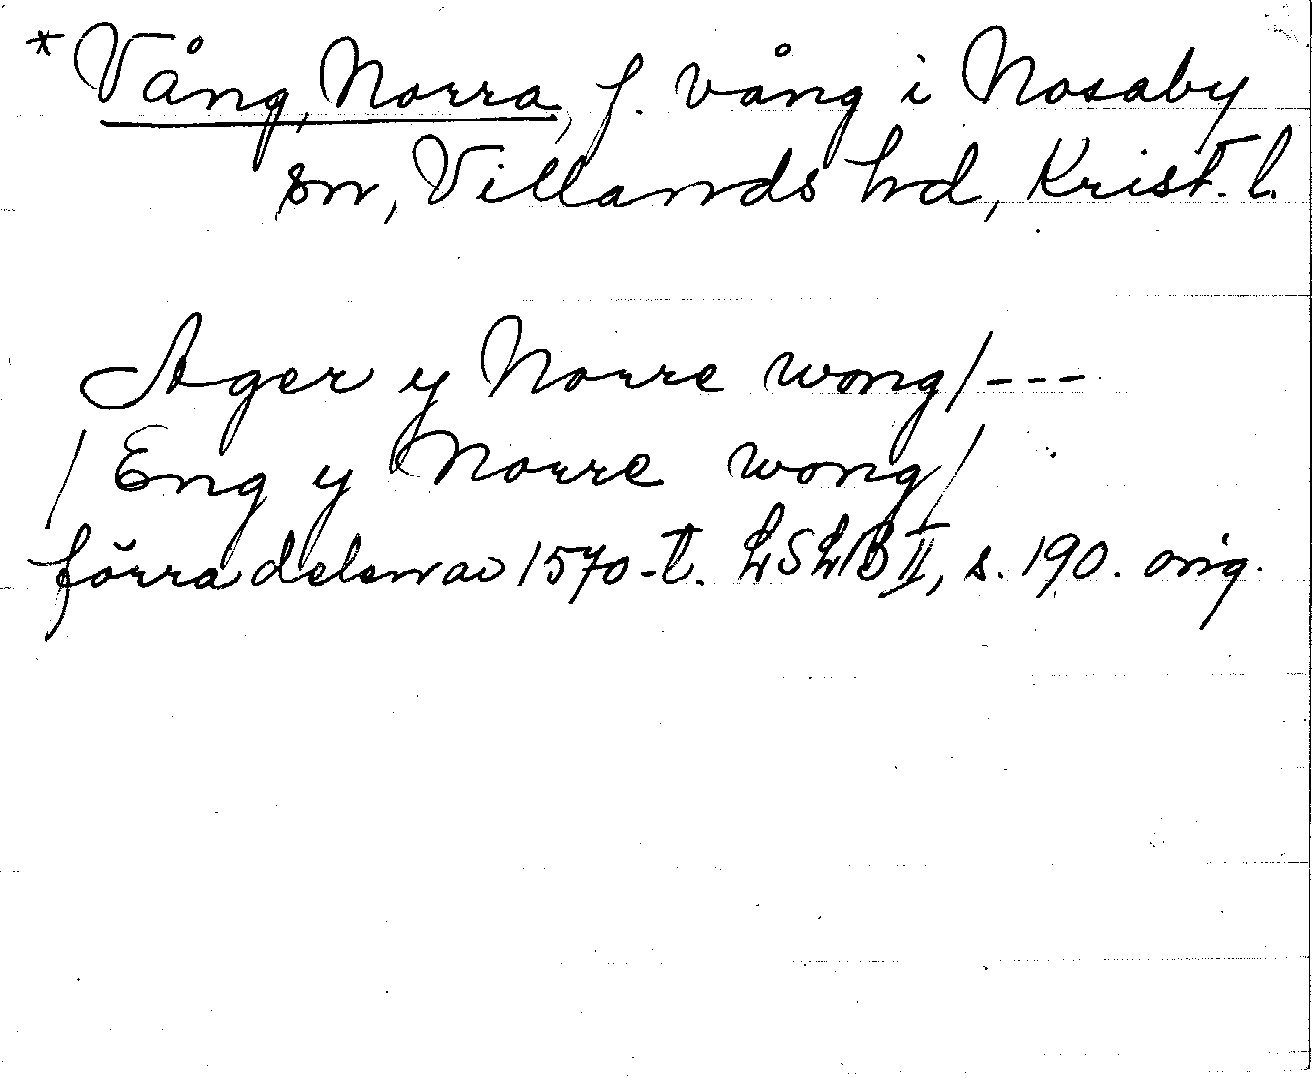 *Vång, Norra, f. vång i Nosaby
sn, Villands hd, Krist. l.
Ager y Norre wong/---
/ Eng y Norre wong/
förra delen av 1570-t. LSLB II, s. 190. orig.